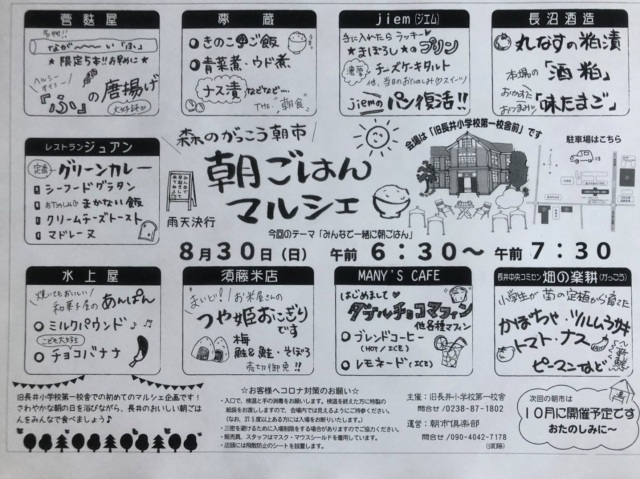 壹麩屋
名物!!
なが〜〜い「ふ」
★限定5本!!お早めに★
ヘルシーですよ〜
『ふ』の唐揚げ
大好評
蔵
●きのこご飯
●青菜煮・ウド煮
ナス漬などなど…
The 朝食
jiem(ジエム)
手に入れたらラッキー♥
★まぼろし★のプリン
濃厚 チーズケーキタルト
他、当日のおたのしみスイーツ
jiemのパン復活!!
長沼酒造
れなすの粕漬
本場の「酒粕」
おかずにおつまみに「味たまご」
レストランジュアン
定番 グリーンカレー
シーフードグラタン
まかない飯
クリームチーズトースト
マドレーヌ
森のがっこう朝市
朝ごはん
マルシェ
雨天決行
今回のテーマ「みんなで一緒に朝ごはん」
会場は「旧長井小学校第一校舎前」です
駐車場はこちら
8月30日(日) 午前 6:30〜午前 7:30
水上屋
焼いてもおいしい
和菓子屋のあんぱん
●ミルクパウンド♪
こども大好き
●チョコバナナ
須藤米店
まいど! お米屋さんの
つや姫おにぎり
です
梅
鮭&鮭・そぼろ
売切御免!!
MANY'S CAFE
はじめまして♥
ダブルチョコマフィン
他各種マフィン
●ブレンドコーヒー
(HOT / ICE)
●レモネード(ICE)
長井中央コミセン 畑の楽耕(がっこう)
小学生が苗の定植から育てた
かぼちゃ・ツルムラサキ
トマト・ナス
ピーマンなど
新鮮
旧長井小学校第一校舎での初めてのマルシェ企画です!
さわやかな朝の日を浴びながら、長井のおいしい朝ごは
んをみんなで食べましょう♪
☆お客様へコロナ対策のお願い☆
・入口で、検温と手の消毒をお願いします。検温を終えた方に特製の
紙袋をお渡ししますので、会場内では見えるようにご持参ください。
(なお、37.5度以上ある方には入場をお断りいたします)
・三密を避けるために入場制限をする場合がありますのでご協力ください。
・販売員、スタッフはマスク・マウスシールドを着用しています。
・店頭には飛散防止のシートを設置します。
主催:旧長井小学校第一校舎
問合せ/0238-87-1802
運営:朝市倶楽部
問合せ/090-4042-7178
(須藤)
次回の朝市は
10月に開催予定です
おたのしみに〜